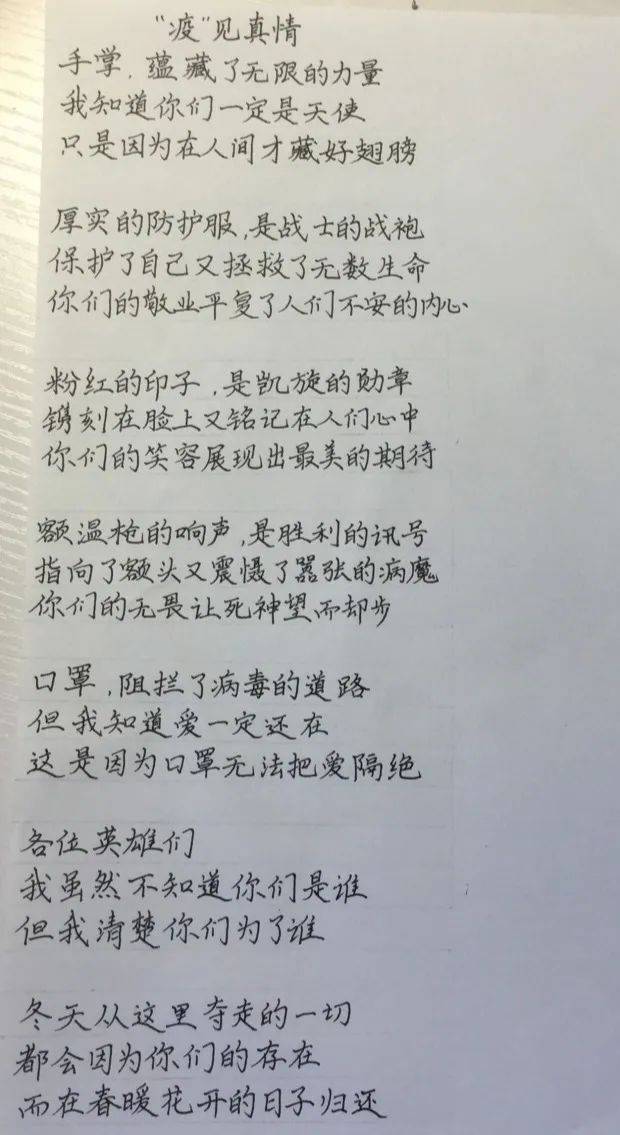 “疫”见真情
手掌，蕴藏了无限的力量
我知道你们一定是天使
只是因为在人间才藏好翅膀
厚实的防护服，是战士的战袍
保护了自己又拯救了无数生命
你们的敬业平复了人们不安的内心
粉红的印子，是凯旋的勋章
镌刻在脸上又铭记在人们心中
你们的笑容展现出最美的期待
额温枪的响声，是胜利的讯号
指向了额头又震慑了嚣张的病魔
你们的无畏让死神望而却步
口罩，阻拦了病毒的道路
但我知道爱一定还在
这是因为口罩无法把爱隔绝
各位英雄们
我虽然不知道你们是谁
但我清楚你们为了谁
冬天从这里夺走的一切
都会因为你们的存在
而在春暖花开的日子归还